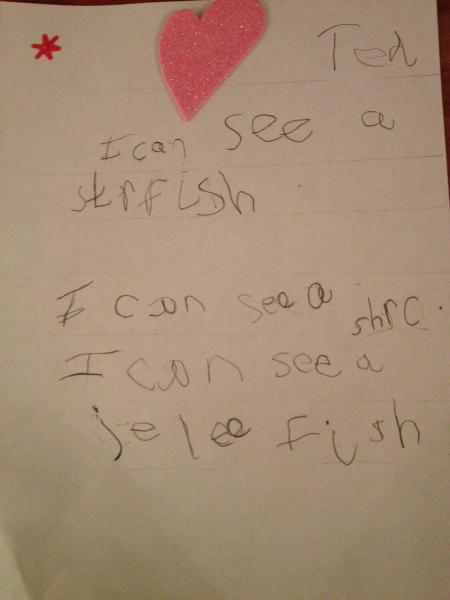 Ted
I can see a
strfish
I can see a shrc.
I can see a
jelee fish